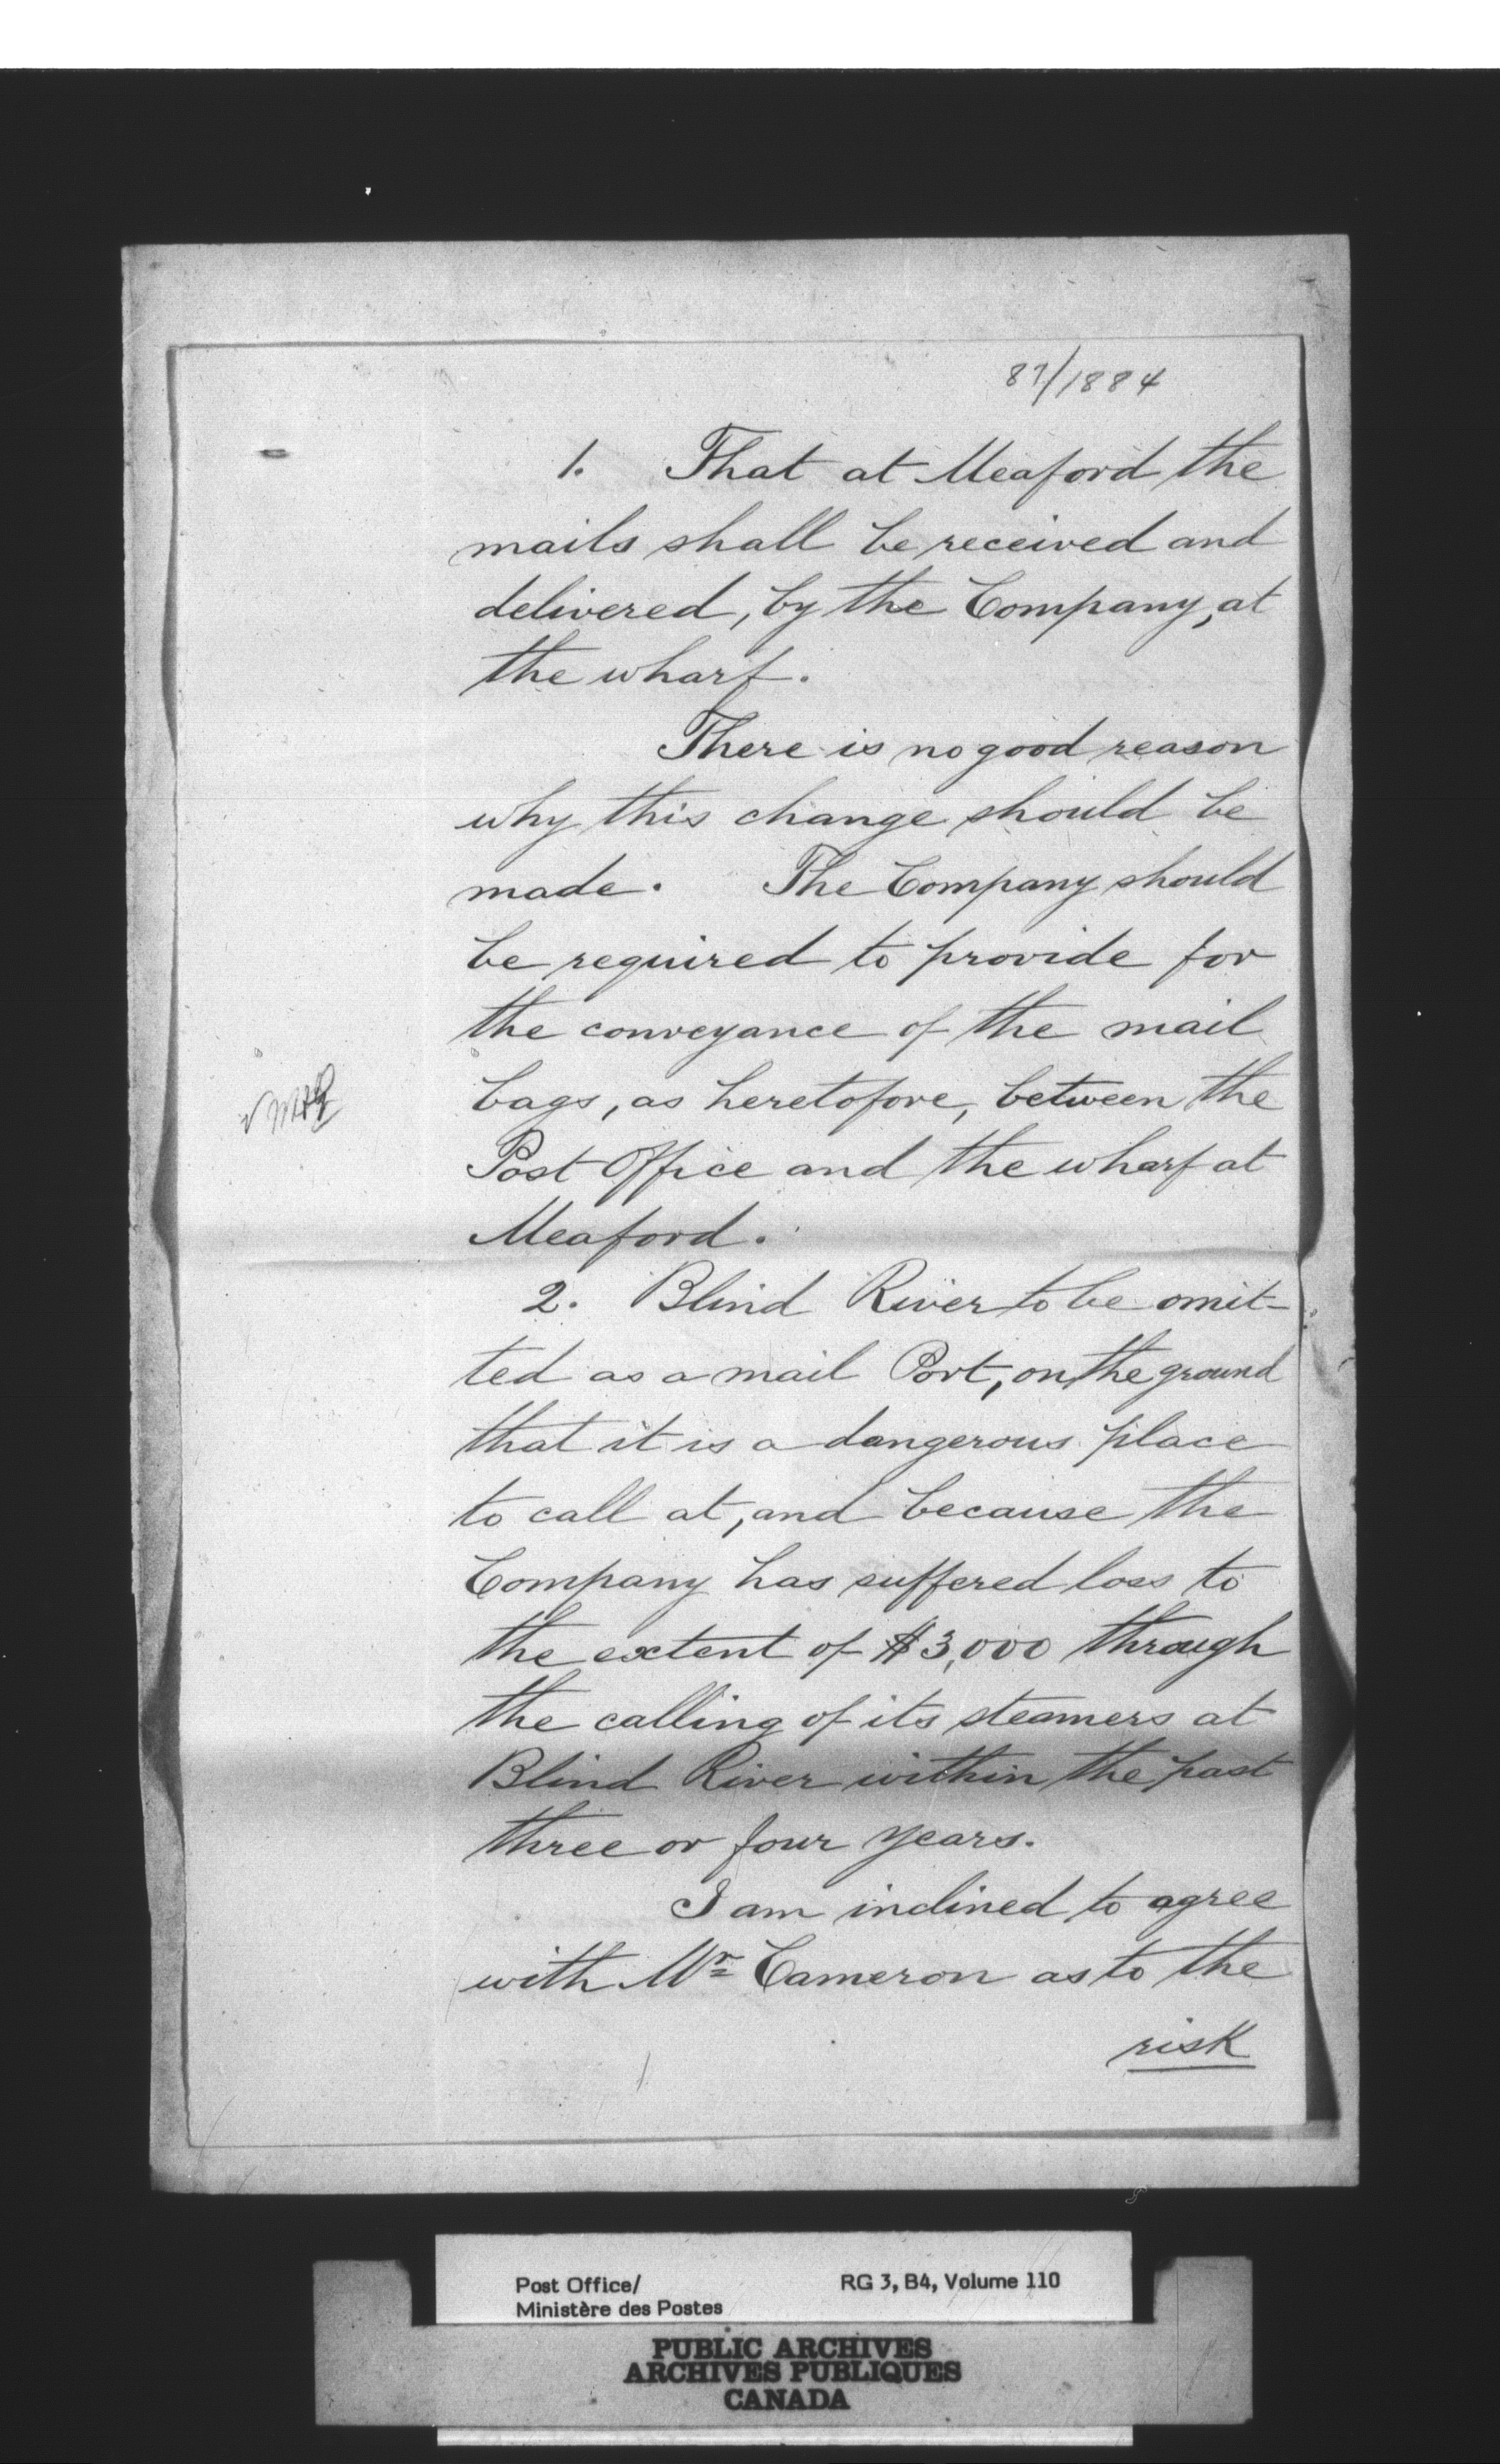 87/1884
1. That at Meaford the
mails shall be received and
delivered, by the Company, at
the wharf.
There is no good reason
why this change should be
made. The Company should
be required to provide for
the conveyance of the mail
bags, as heretofore, between the
Post Office and the wharf at
Meaford.
2. Blind River to be omit-
ted as a mail Port, on the ground
that it is a dangerous place
to call at, and because the
Company has suffered loss to
the extent of $3,000 through
the calling of its steamers at
Blind River within the past
three or four years.
I am inclined to agree
with Mr Cameron as to the
risk
Post Office/
Ministère des Postes
RG 3, B4, Volume 110
PUBLIC ARCHIVES
ARCHIVES PUBLIQUES
CANADA